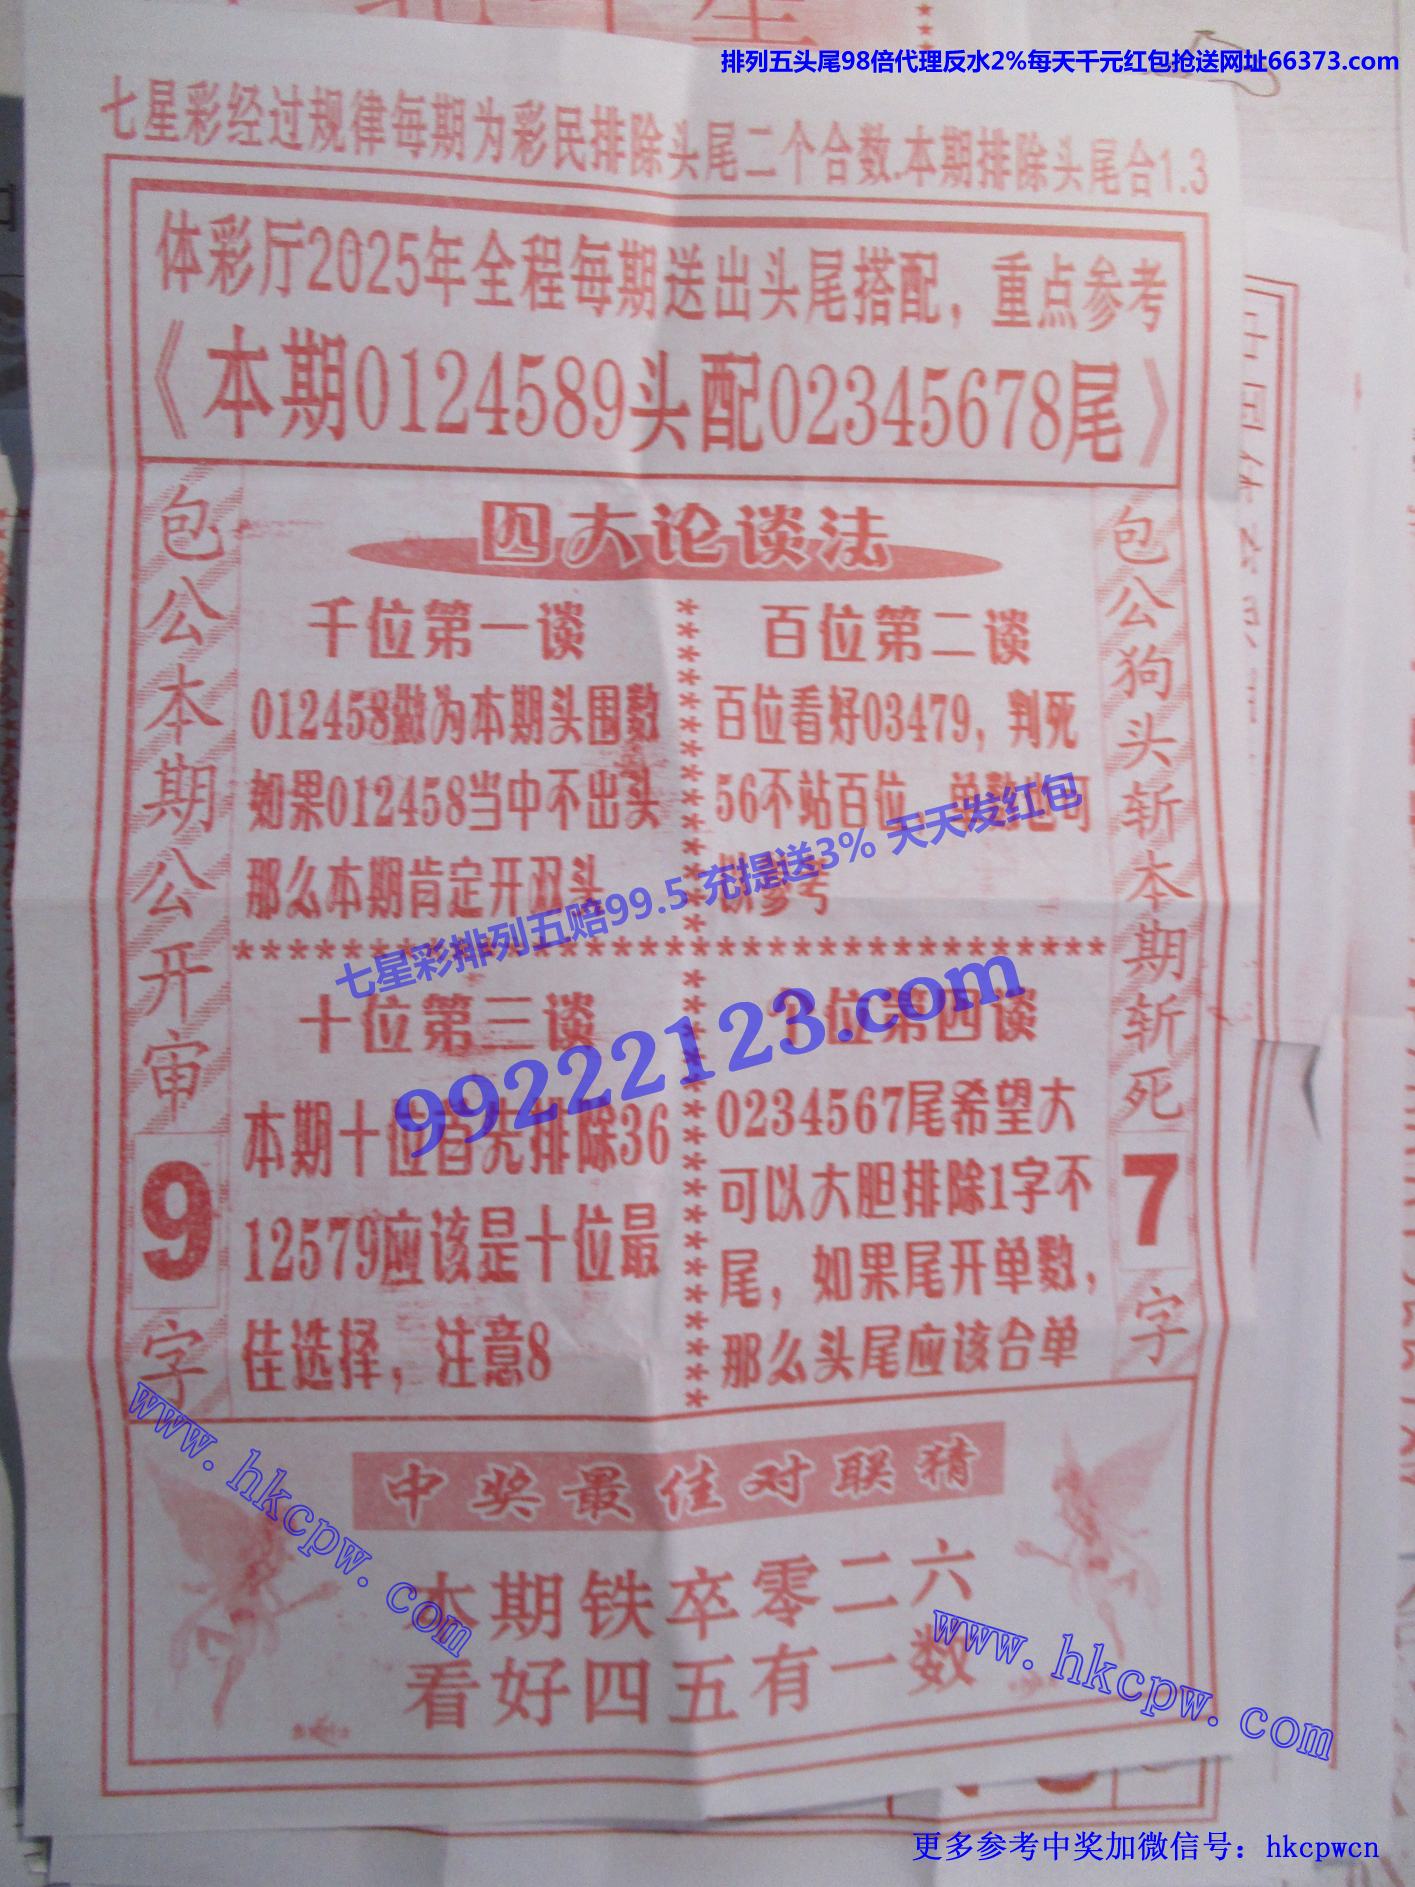 排列五头尾98倍代理反水2%每天千元红包抢送网址66373.com
七星彩经过规律每期为彩民排除头尾二个合数.本期排除头尾合1.3
体彩厅2025年全程每期送出头尾搭配，重点参考
《本期0124589头配02345678尾》
包公本期公开审9字
四大论谈法
千位第一谈
012458做为本期头围数
如果012458当中不出头
那么本期肯定开双头
百位第二谈
百位看好03479，判死
56不站百位，单数也可
参考
七星彩排列五赔99.5 充提送3% 天天发红包
99222123.com
十位第三谈
本期十位首先排除36
12579应该是十位最
佳选择，注意8
位第四谈
0234567尾希望大
可以大胆排除1字不
尾，如果尾开单数，
那么头尾应该合单
包公狗头斩本期斩死7字
中奖最佳对联猜
本期铁卒零二六
看好四五有一数
www.hkcpw.com
www.hkcpw.com
更多参考中奖加微信号：hkcpwcn